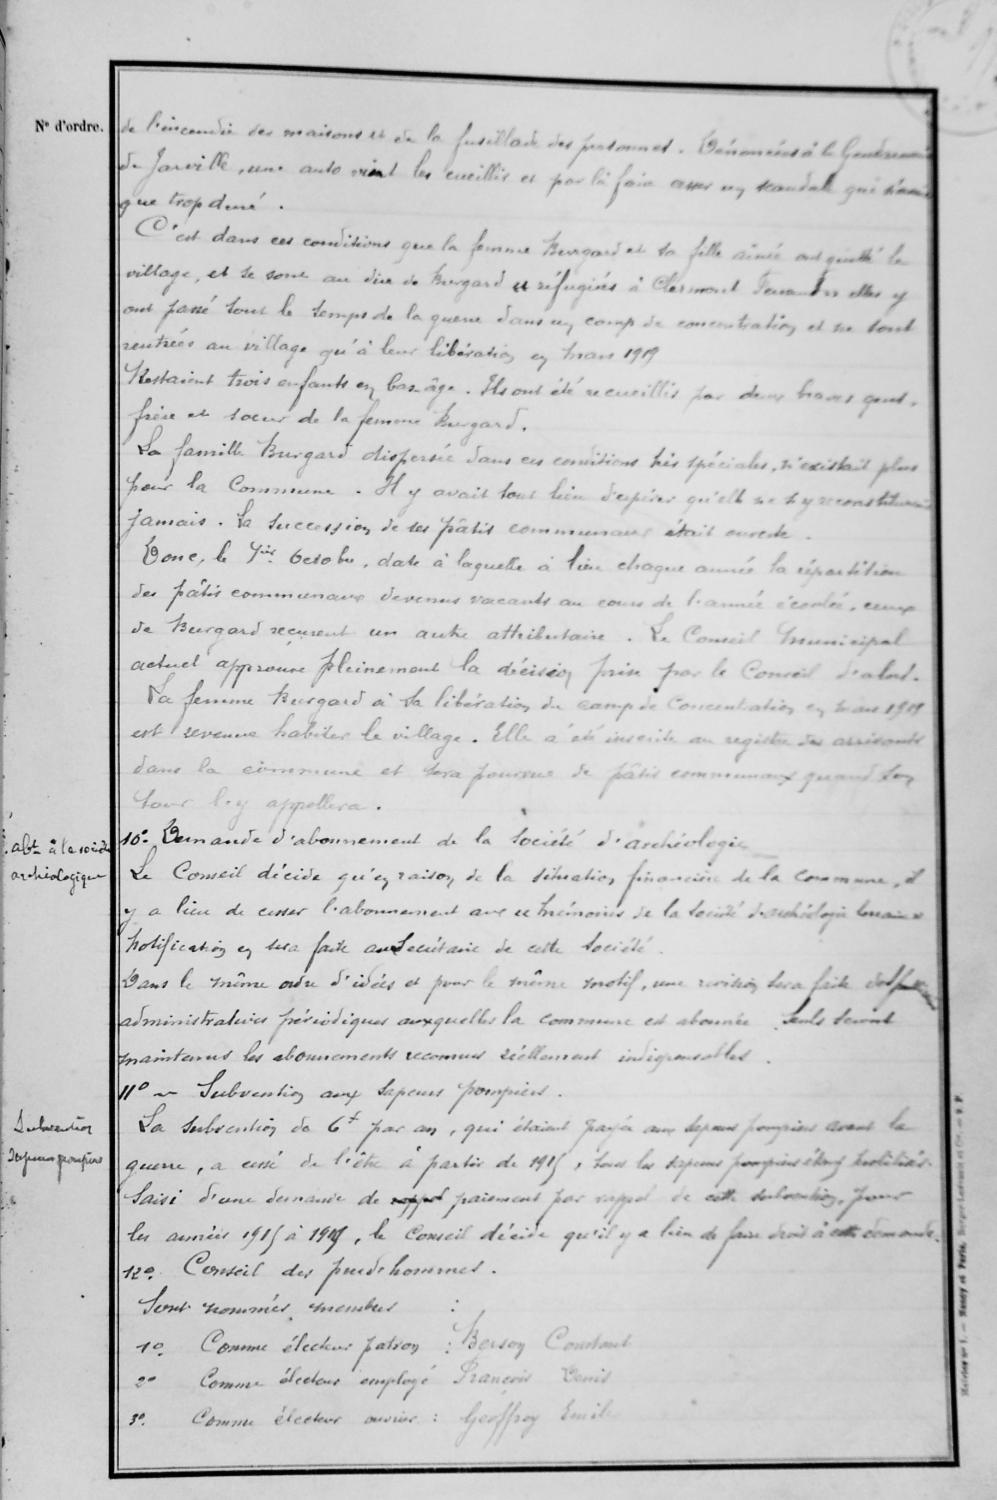 N° d'ordre.
de l'incendie des maisons et de la fusillade des personnes. Dénoncées à la Gendarmerie
de Jarville, une auto vient les cueillir et par là faire cesser un scandale qui n'avait
que trop duré.
C'est dans ces conditions que la femme Burgard et sa fille aînée ont quitté le
village, et se sont au dire de Burgard réfugiées à Clermont Ferrand elles y
ont passé tout le temps de la guerre dans un camp de concentration et ne sont
rentrées au village qu'à leur libération en mars 1919
Restaient trois enfants en bas-âge. Ils ont été recueillis par deux braves gens,
frère et soeur de la femme Burgard.
La famille Burgard dispersée dans ces conditions très spéciales, n'existait plus
pour la Commune. Il y avait tout lieu d'espérer qu'elle ne s'y reconstituerait
jamais. La succession de ses pâtis communaux était ouverte.
Donc, le 1er Octobre, date à laquelle a lieu chaque année la répartition
des pâtis communaux devenus vacants au cours de l'année écoulée, ceux
de Burgard reçurent un autre attributaire. Le Conseil Municipal
actuel approuve pleinement la décision prise par le Conseil d'alors.
La femme Burgard à sa libération du camp de Concentration en mars 1919
est revenue habiter le village. Elle a été inscrite au registre des arrivants
dans la commune et sera pourvue de pâtis communaux quand son
tour l'y appellera.
abt à la société
archéologique
10°- Demande d'abonnement de la Société d'archéologie
Le Conseil décide qu'en raison de la situation financière de la Commune, il
y a lieu de cesser l'abonnement aux Mémoires de la Société d'archéologie lorraine
Notification en sera faite au Secrétaire de cette Société.
Dans le même ordre d'idées et pour le même motif, une révision sera faite des
administratives périodiques auxquelles la commune est abonnée. Seuls seront
maintenus les abonnements reconnus réellement indispensables.
11° - Subvention aux Sapeurs pompiers.
Subvention
Sapeurs pompiers
La subvention de 6f par an, qui était payée aux sapeurs pompiers avant la
guerre, a cessé de l'être à partir de 1915, tous les sapeurs pompiers étant mobilisés.
Saisi d'une demande de rappel paiement par rappel de cette subvention, pour
les années 1915 à 1919, le Conseil décide qu'il y a lieu de faire droit à cette demande.
12°. Conseil des prud'hommes.
Sont nommés membres :
1°. Comme électeur patron : Berson Constant
2° Comme électeur employé François Denis
3°. Comme électeur ouvrier : Geoffroy Emile
Nancy et Paris, Berger-Levrault et Cie